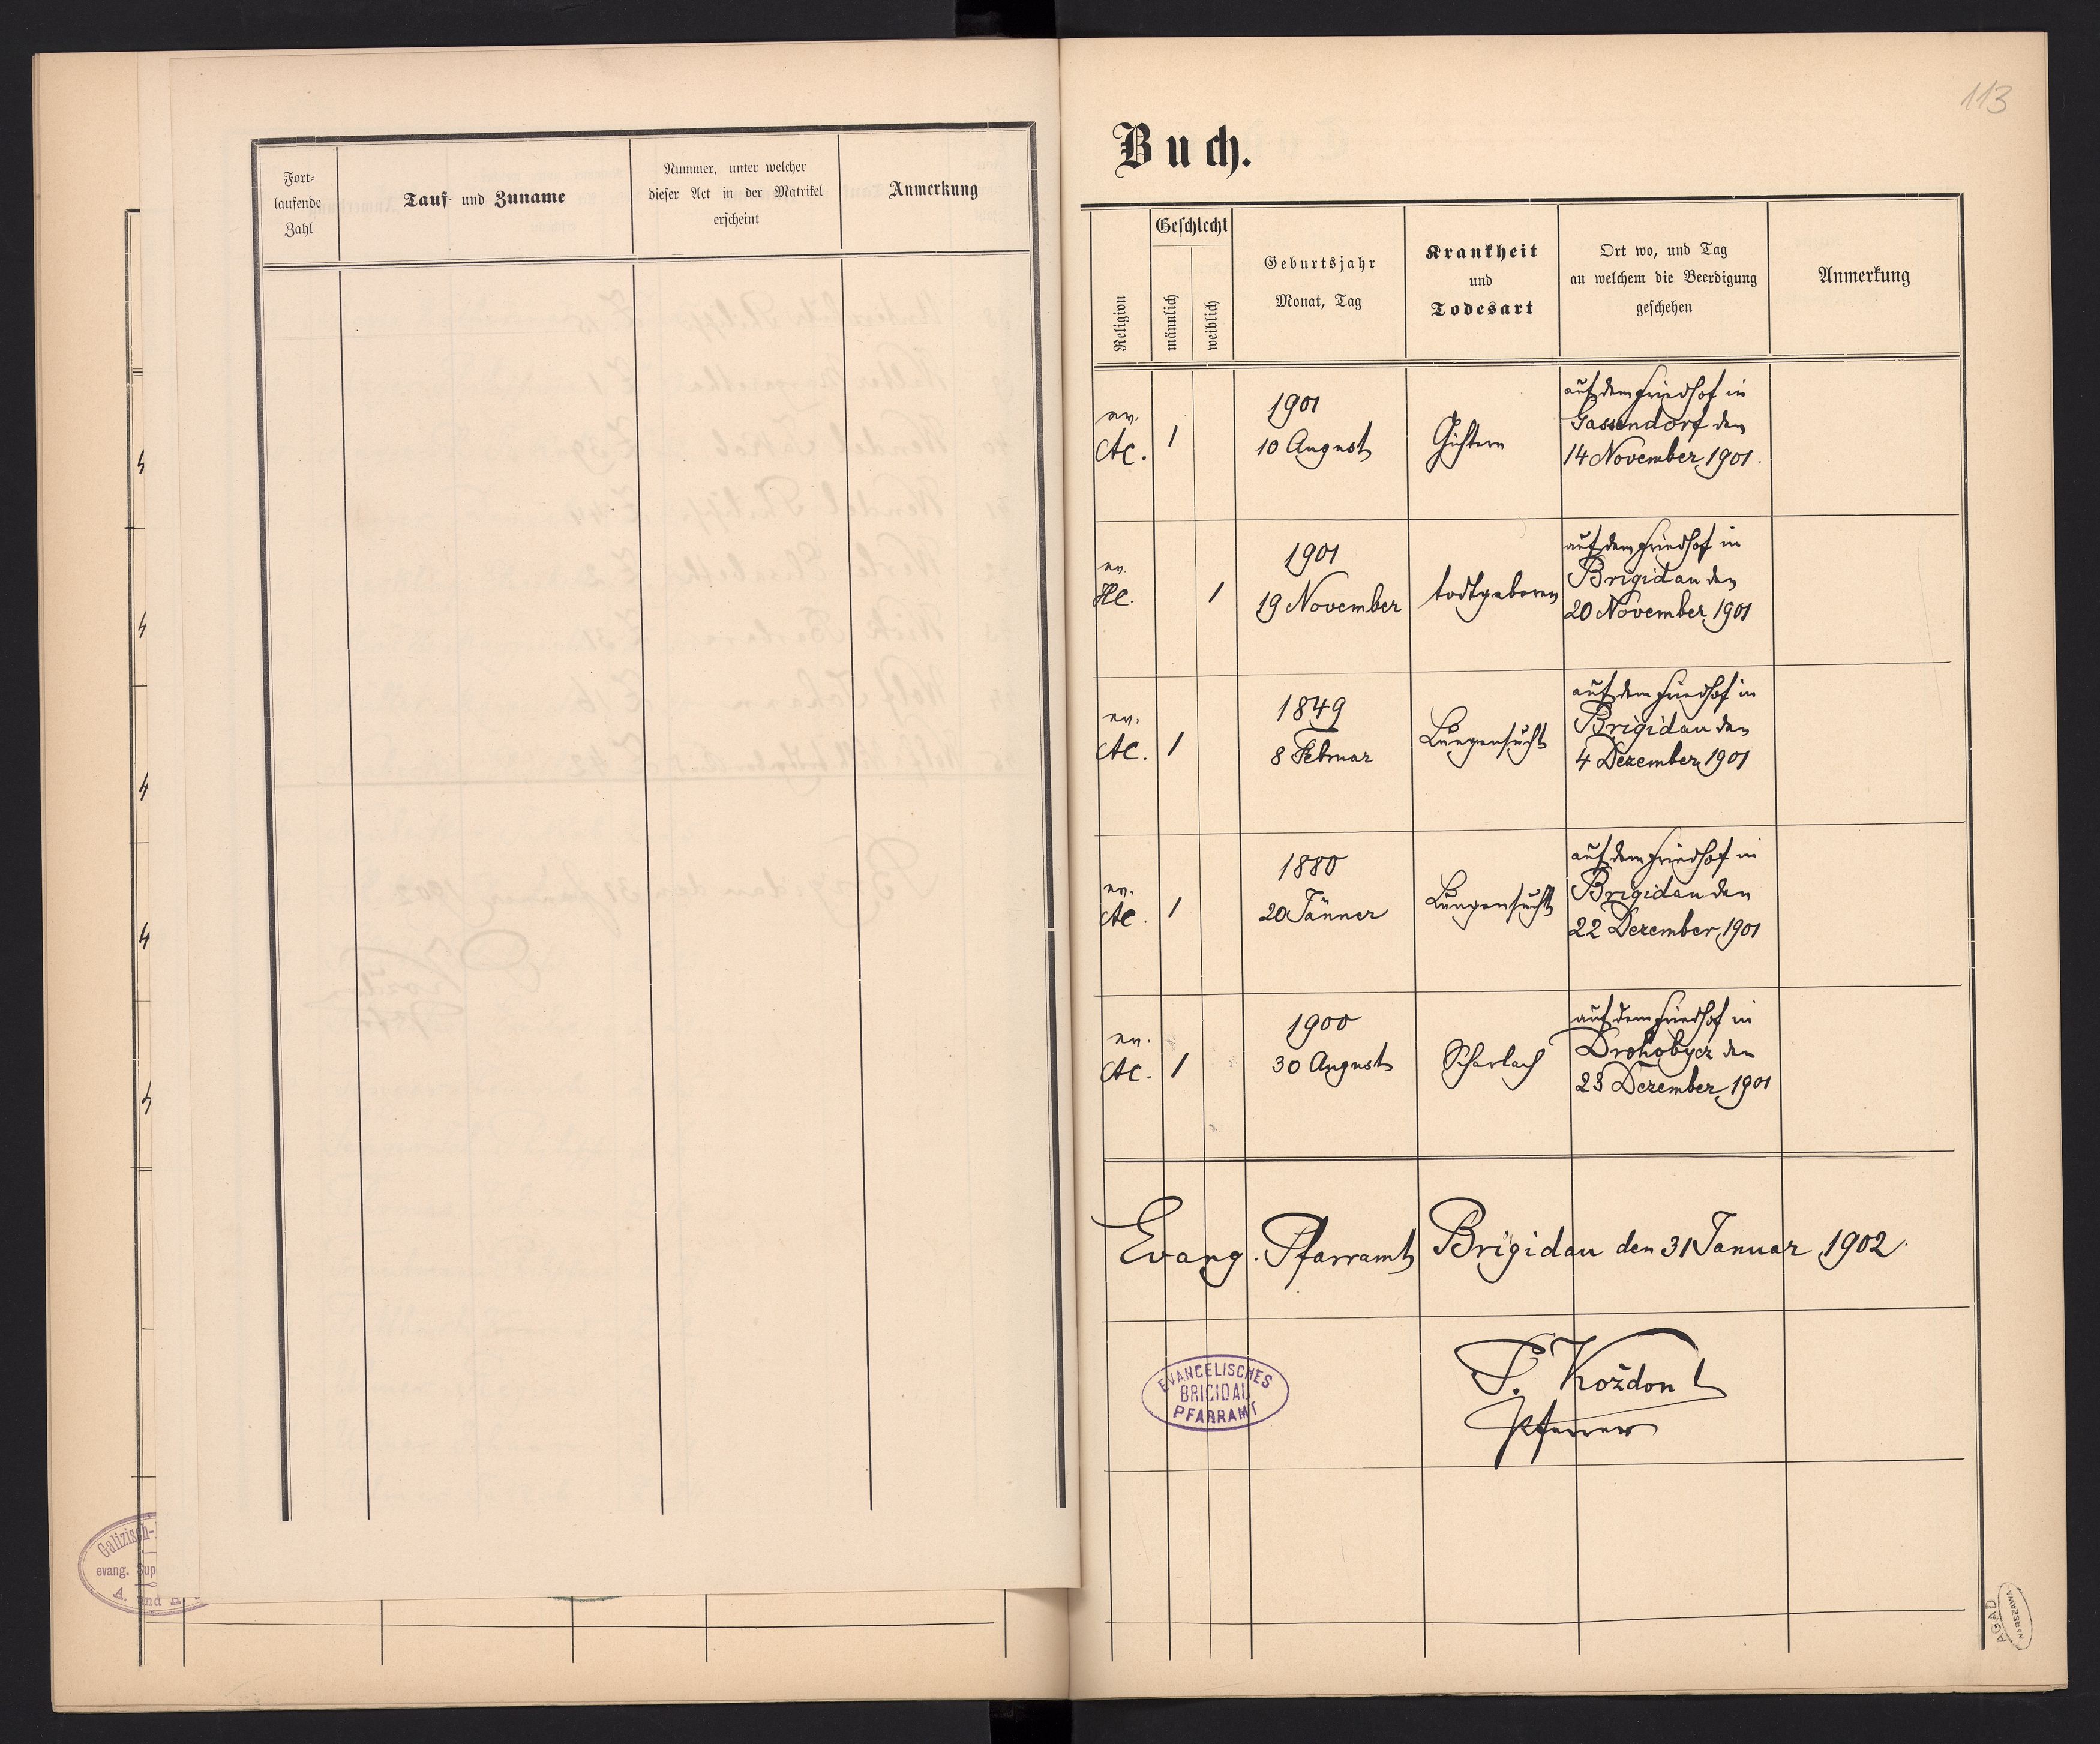 113
Fort-
laufende
Zahl
Tauf- und Zuname
Nummer, unter welcher
dieser Act in der Matrikel
erscheint
Anmerkung
Buch.
Religion
Geschlecht
männlich
weiblich
Geburtsjahr
Monat, Tag
Krankheit
und
Todesart
Ort wo, und Tag
an welchem die Beerdigung
geschehen
Anmerkung
ev.
AC.
1
1901
10 August
Gichtern
auf dem Friedhof in
Gassendorf den
14 November 1901.
ev.
HC.
1
1901
19 November
todtgeboren
auf dem Friedhof in
Brigidau den
20 November 1901
ev.
AC.
1
1849
8 Februar
Lungensucht
auf dem Friedhof in
Brigidau den
4 Dezember 1901
ev.
AC.
1
1880
20 Jänner
Lungensucht
auf dem Friedhof in
Brigidau den
22 Dezember 1901
ev.
AC.
1
1900
30 August
Scharlach
auf dem Friedhof in
Drohobycz den
23 Dezember 1901
Evang. Pfarramt Brigidau den 31 Januar 1902.
EVANGELISCHES
BRIGIDAU
PFARRAMT
P. Koždon
Pfarrer
Galizisch-
evang. Sup
A. und H
AGAD
WARSZAWA